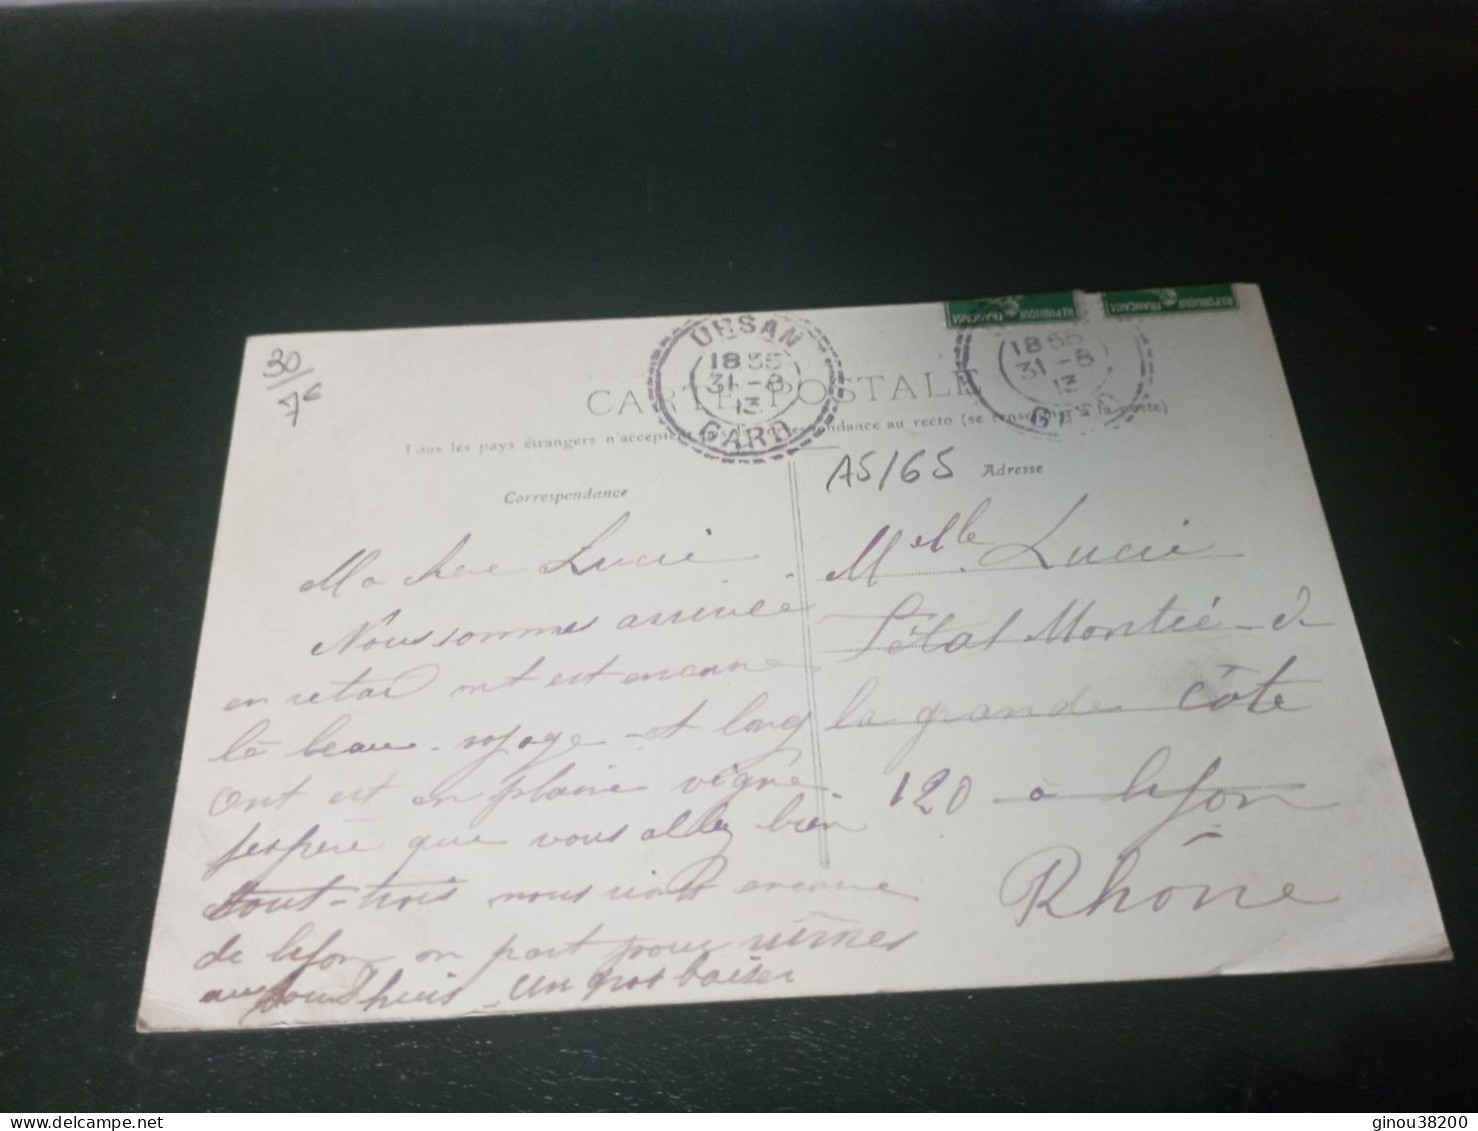 30/7€
URSAN
18 35
31-8
13
GARD
REPUBLIQUE FRANÇAISE
REPUBLIQUE FRANÇAISE
18 35
31-8
13
CARTE POSTALE
Tous les pays étrangers n'acceptent pas de correspondance au recto (se renseigner à la poste)
A5/65
Correspondance
Ma chere Lucie
Nous sommes arrivée
en retar ont est encorre
le beau voyage et long
ont est en plaine vigne
jespere que vous allez bien
tout-trois nous encorre
de lyon on part pour nimes
aujourdhuis un gros baiser
Adresse
Melle Lucie
Montée d
la grande côte
120 à lyon
Rhône
delcampe.net
ginou38200